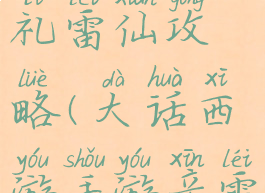 léi xiān gōng
礼雷仙攻
lüè dà huà xī
略(大话西
yóu shǒu yóu xīn léi
游手游